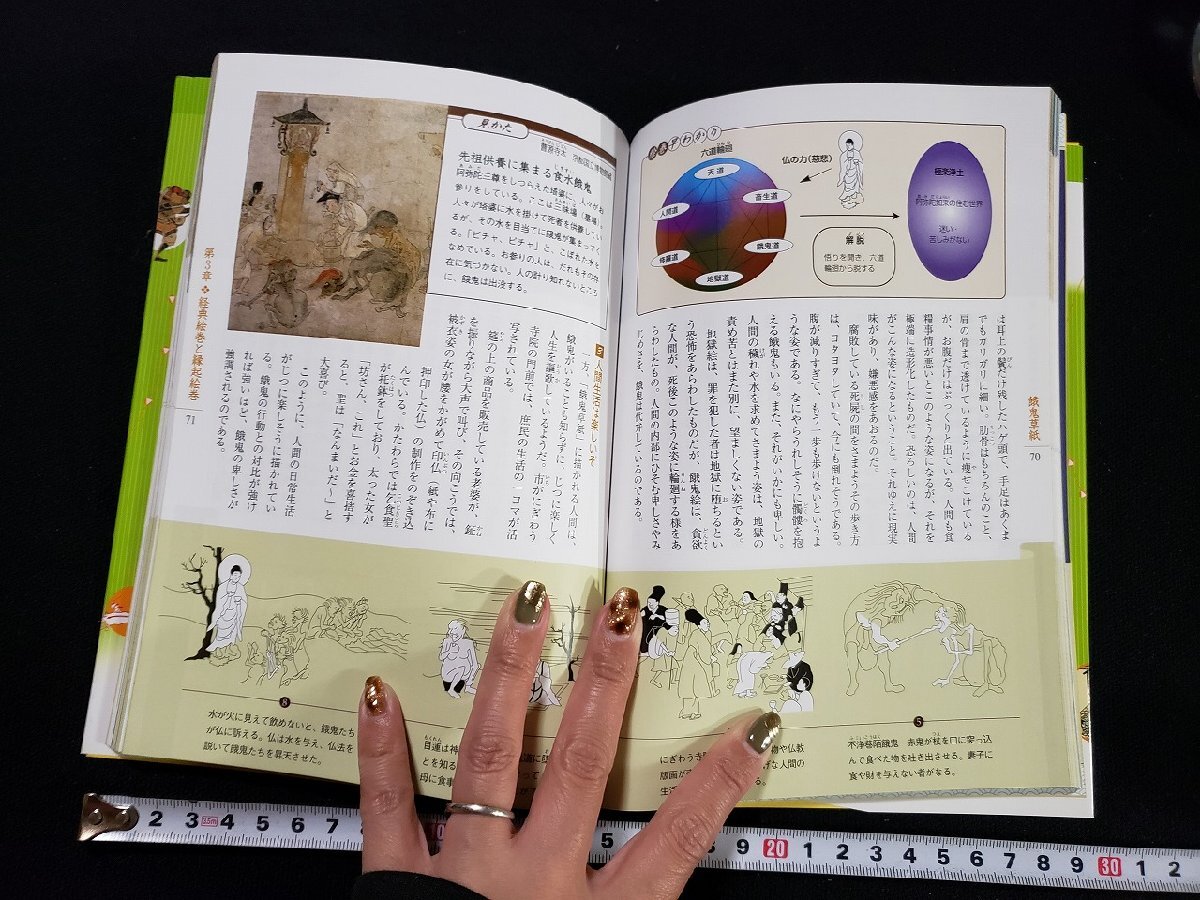 餓鬼草紙
70
絵巻早わかり
六道輪廻
天道
人間道
畜生道
修羅道
餓鬼道
地獄道
仏の力(慈悲)
解説
悟りを開き、六道
輪廻から脱する
極楽浄土
阿弥陀如来の住む世界
迷い・
苦しみがない
は耳上の鬢だけ残したハゲ頭で、手足はあくま
でもガリガリに細い。肋骨はもちろんのこと、
肩の骨まで透けているように痩せこけている
が、お腹だけはぷっくりと出ている。人間も食
糧事情が悪いとこのような姿になるが、それを
極端に造形化したものだ。恐ろしいのは、人間
がこんな姿になるということ、それゆえに現実
味があり、嫌悪感をあおるのだ。
腐敗している死屍の間をさまようその歩き方
は、ヨタヨタしていて、今にも倒れそうである。
腹が減りすぎて、もう一歩も歩けないというよ
うな姿である。なにやらうれしそうに髑髏を抱
える餓鬼もいる。また、それがいかにも卑しい。
人間の穢れや水を求めてさまよう姿は、地獄の
責め苦とはまた別に、望ましくない姿である。
地獄絵は、罪を犯した者は地獄に堕ちるとい
う恐怖をあらわしたものだが、餓鬼絵は、貪欲
な人間が、死後このような姿に輪廻する様をあ
らわしたもの。人間の内部にひそむ卑しさやみ
じめさを、餓鬼は代弁しているのである。
5
不浄巷陌餓鬼 赤鬼が杖を口に突っ込
んで食べた物を吐き出させる。妻子に
食や財を与えない者がなる。
にぎわう寺
版画が
生活
物や仏教
げな人間の
る。
見かた
曹源寺本 京都国立博物館蔵
先祖供養に集まる食水餓鬼
阿弥陀三尊をしつらえた塔婆に、人々がお
参りをしている。ここは三昧場(墓場)。
人々が塔婆に水を掛けて死者を供養してい
るが、その水を目当てに餓鬼が集まってく
る。「ピチャ、ピチャ」と、こぼれた水を
なめている。お参りの人は、だれもその存
在に気づかない。人の計り知れないところ
に、餓鬼は出没する。
人間生活は楽しいぞ
一方、「餓鬼草紙」に描かれる人間は、
餓鬼がいることも知らずに、じつに楽しく
人生を謳歌しているようだ。市がにぎわう
寺院の門前では、庶民の生活の一コマが活
写されている。
筵の上の商品を販売している老婆が、鉦
を振りながら大声で叫び、その向こうでは、
被衣姿の女が腰をかがめて印仏(紙や布に
押印した仏)の制作をのぞき込
んでいる。かたわらでは乞食聖
が托鉢をしており、太った女が
「坊さん、これ」とお金を喜捨す
ると、聖は「なんまいだ〜」と
大喜び。
このように、人間の日常生活
がじつに楽しそうに描かれてい
る。餓鬼の行動との対比が強け
れば強いほど、餓鬼の卑しさが
強調されるのである。
第3章 経典絵巻と縁起絵巻
71
目連は神
とを知る
母に食事
8
水が火に見えて飲めないと、餓鬼たち
が仏に訴える。仏は水を与え、仏法を
説いて餓鬼たちを昇天させた。
2 3 3.5m 4 5 6 7 8
5
9 20 1 2 3 4 5 6 7 8 9 30 1 2